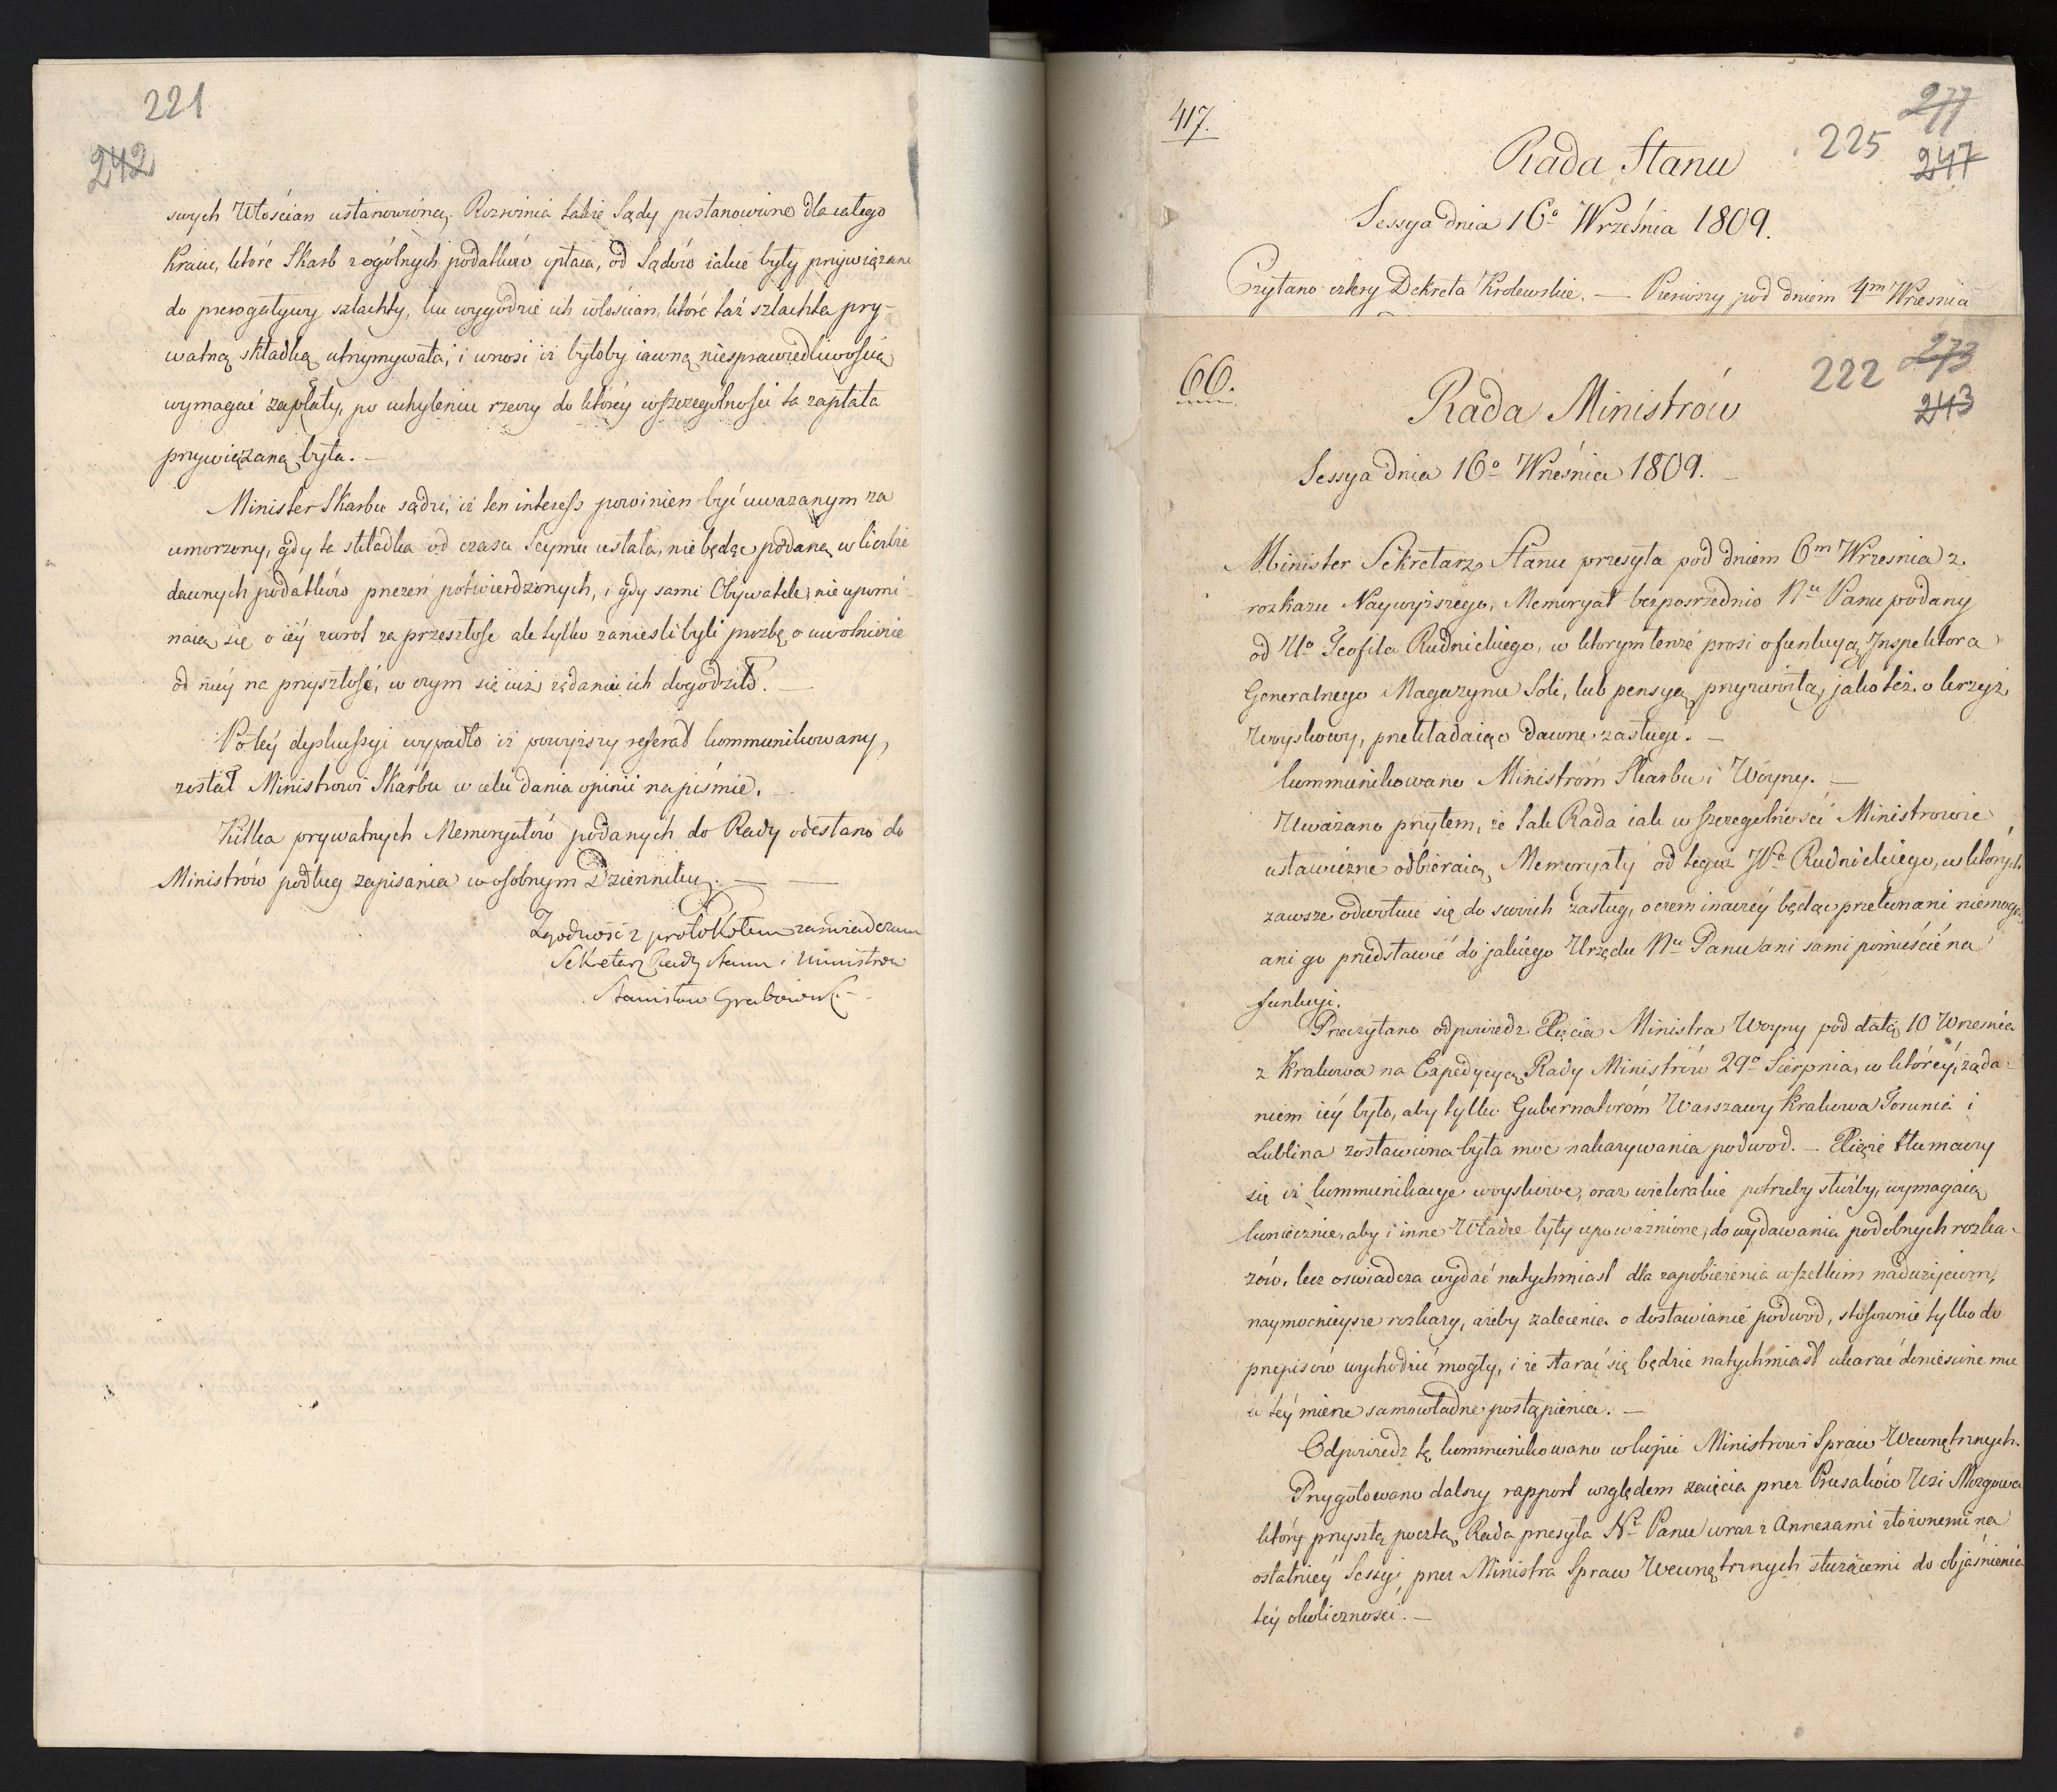 221
242
swych Włościan ustanowioną. Rozwinia takie Sądy postanowione dla całego
Kraiu, które Skarb z ogólnych podatków opłaca, od Sądów iakie były przywiązane
do prerogatywy szlachty, ku wygodzie ich włościan, które taż szlachta pry-
watną składką utrzymywała, i wnosi iż byłoby iawną niesprawiedliwością
wymagać zapłaty, po uchyleniu rzeczy do którey wszczegolności ta zapłata
przywiązaną była. —
Minister Skarbu sądzi, iż ten interess powinien być uważanym za
umorzony, gdy ta składka od czasu Seymu ustała, nie będąc podaną w liczbie
dawnych podatków przezeń potwierdzonych, i gdy sami Obywatele, nie upomi-
naią się o iéy zwrot za przeszłość ale tylko zanieśli byli prozbę o uwolnienie
od niéy na przyszłość, w czym się iuż żądaniu ich dogodziło. —
Po téy dyskussyi wypadło iż powyższy referat kommunikowany,
został Ministrowi Skarbu w celu dania opinii na piśmie.
Kilka prywatnych Memoryałów podanych do Rady odesłano do
Ministrów podług zapisania w osobnym Dzienniku. —
Zgodność z protokołem zaświadczam
Sekretarz Rady Stanu i Ministrów
Stanisław Grabowski
417.
277
225
247
Rada Stanu
Sessya dnia 16º Września 1809.
Czytano cztery Dekreta Królewskie. — Pierwszy pod dniem 4m Września
66.
273
222
243
Rada Ministrów
Sessya dnia 16º Września 1809. —
Minister Sekretarz Stanu przesyła pod dniem 6m Wrzesnia z
rozkazu Naywyższego, Memoryał bezpośrzednio Nu Panu podany
od Uo Teofila Rudnickiego, w którym tenże prosi o funkcyą Inspektora
Generalnego Magazynu Soli, lub pensyą przyzwoitą, jako też o krzyż
Woyskowy, przekładaiąc dawne zasługi. —
Kommunikowano Ministróm Skarbu i Woyny. —
Uważano przytem, że tak Rada iak w szczególności Ministrowie
ustawicznie odbieraią, Memoryały od tegoż Rudnickiego, w których
zawsze odwołuie się do swoich zasług, o czem inaczéy będąc przekonani niemogą
ani go przedstawić do jakiego Urzędu Nu Panu ani sami pomieścić na
funkcyi.
Przeczytano odpowiedz Xięcia Ministra Woyny pod datą 10 Wrzesnia
z Krakowa na Expedycyą Rady Ministrów 29º Sierpnia, w któréy, żąda-
niem iéy było, aby tylko Gubernatoróm Warszawy Krakowa Torunia i
Lublina zostawiona była moc nakazywania podwod. — Xiąże tłumaczy
się iż kommunikacye woyskowe, oraz wielorakie potrzeby służby, wymagaią
koniecznie, aby i inne Władze były upoważnione, do wydawania podobnych rozka-
zów, lecz oswiadcza wydać natychmiast dla zapobieżenia wszelkim nadużyciom,
naymocnieysze rozkazy, ażeby zalecenia o dostawianie podwod, stosownie tylko do
przepisów wychodzić mogły, i że starać się będzie natychmiast ukarać doniesione mu
w téy mierze samowładne postąpienia. —
Odpowiedz tę kommunikowano w kopii Ministrowi Spraw Wewnętrznych.
Przygotowano dalszy rapport względem zaięcia przez Prusaków Wsi Mozgowa
który przyszłą pocztą, Rada przesyła No Panu wraz z Annexami złożonemi na
ostatniéy Sessyi przez Ministra Spraw Wewnętrznych służącemi do objaśnienia
téy okoliczności. —